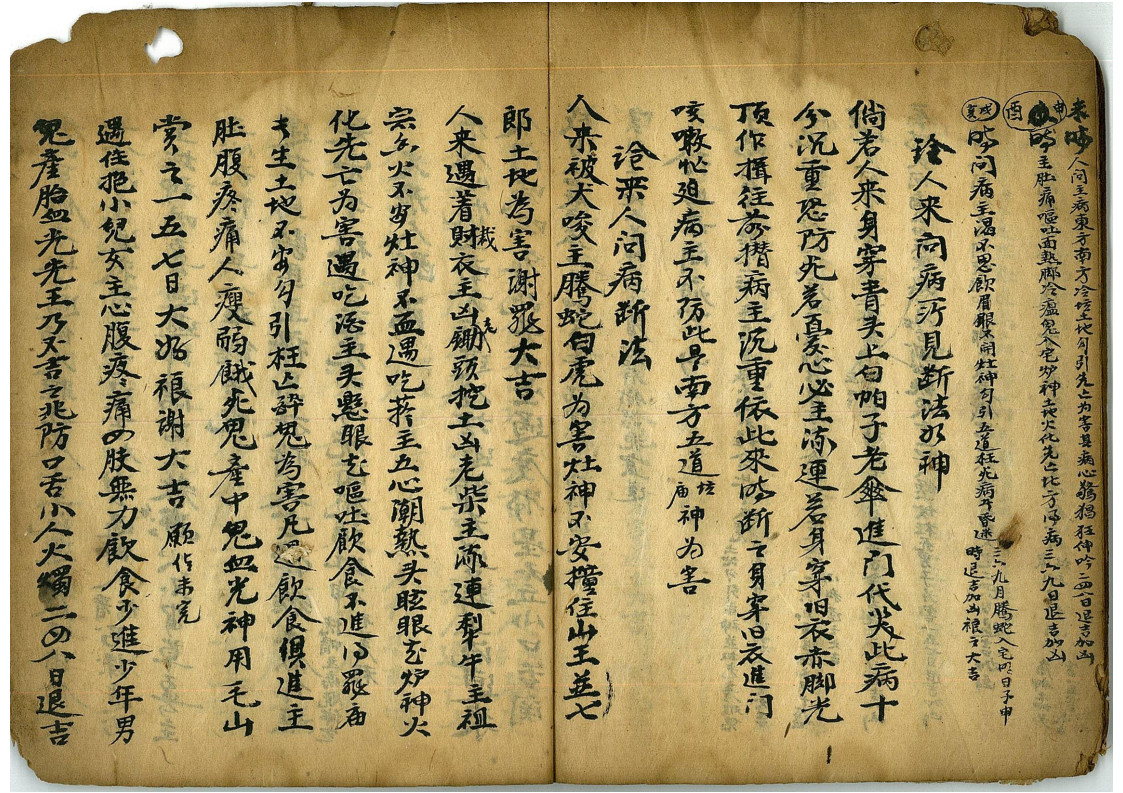 未時人问主病東方南方冷坟土地勾引先亡为害其病心驚獨狂伸吟二四六日退吉加凶
申酉時主肚痛嘔吐面熱脚冷瘟鬼入宅炉神土地火化先亡北方得病三六九日退吉加凶
戌亥時问病主湿不思飲眉眼不開灶神勾引五道枉死病年昏迷三六九月腾蛇入宅四日子申時退吉加凶禳之大吉
論人来问病所見断法収神
倘若人来身穿青头上白帕子老傘進门代哭此病十
分沉重恐防死若憂心必主流連若身穿旧衣赤脚光
頂作揖往前攅病主沉重依此來時断之身穿旧衣進门
咳嗽忙廻病主不防此是南方五道坟庙神为害
論来人问病断法
人来被犬咬主騰蛇白虎为害灶神不安攩住山王並七
郎土地為害谢罪大吉
人来遇着財裁衣主凶鋤頭挖土凶老柴主流連犁牛主祖
宗香火不安灶神不血遇吃菸主五心潮熱头眩眼花炉神火
化先亡为害遇吃酒主头懸眼花嘔吐飲食不進得罪庙
生土地不安勾引枉亡醉鬼為害凡遇飲食俱進主
肚腹疼痛人瘦弱餓死鬼產中鬼血光神用毛山
赏之一五七日大好禳谢大吉 願信未完
遇住抱小兒女主心腹疼痛四肢無力飲食少進少年男
鬼產胎血光先王乃不吉之兆防口舌小人火燭二四八日退吉